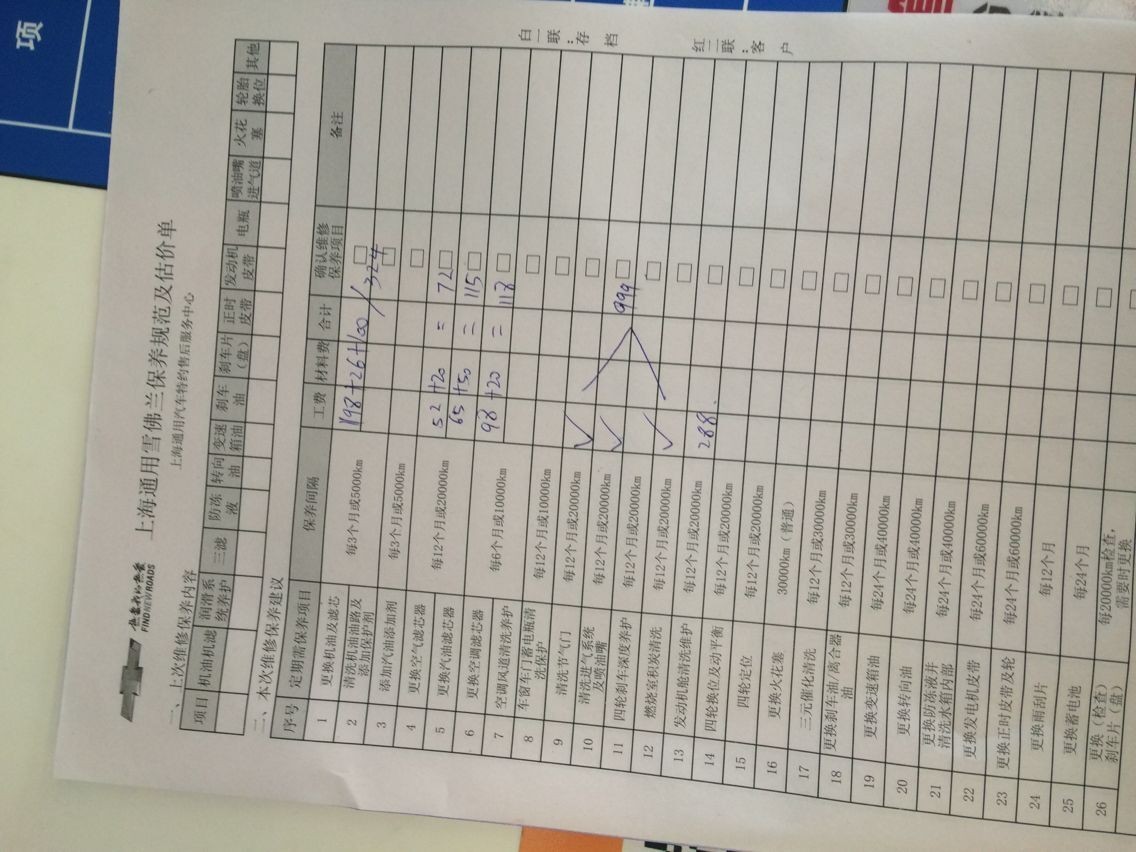 项
热爱我的热爱
FIND NEW ROADS
上海通用雪佛兰保养规范及估价单
上海通用汽车特约售后服务中心
白一联：存档
红二联：客户
一、上次维修保养内容
项目 机油机滤 润滑系统养护 三滤 防冻液 转向油 变速箱油 刹车油 刹车片（盘） 正时皮带 发动机皮带 电瓶 喷油嘴进气道 火花塞 轮胎换位 其他
二、本次维修保养建议
序号 定期需保养项目 保养间隔 工费 材料费 合计 确认维修保养项目 备注
1 更换机油及滤芯 每3个月或5000km 198+26+100 / 324 □
2 清洗机油油路及添加保护剂 □
3 添加汽油添加剂 每3个月或5000km □
4 更换空气滤芯器 每12个月或20000km 52+20 = 72 □
5 更换汽油滤芯器 65+50 = 115 □
6 更换空调滤芯器 每6个月或10000km 98+20 = 118 □
7 空调风道清洗养护 每12个月或10000km □
8 车窗车门蓄电瓶清洗保护 每12个月或20000km □
9 清洗节气门 每12个月或20000km ✓ □
10 清洗进气系统及喷油嘴 每12个月或20000km ✓ 999 □
11 四轮刹车深度养护 每12个月或20000km □
12 燃烧室积炭清洗 每12个月或20000km ✓ □
13 发动机舱清洗维护 每12个月或20000km 288. □
14 四轮换位及动平衡 每12个月或20000km □
15 四轮定位 每12个月或20000km □
16 更换火花塞 30000km（普通） □
17 三元催化清洗 每12个月或30000km □
18 更换刹车油/离合器油 每12个月或30000km □
19 更换变速箱油 每24个月或40000km □
20 更换转向油 每24个月或40000km □
21 更换防冻液并清洗水箱内部 每24个月或40000km □
22 更换发电机皮带 每24个月或60000km □
23 更换正时皮带及轮 每24个月或60000km □
24 更换雨刮片 每12个月 □
25 更换蓄电池 每24个月 □
26 更换（检查）刹车片（盘） 每20000km检查，需要时更换 □